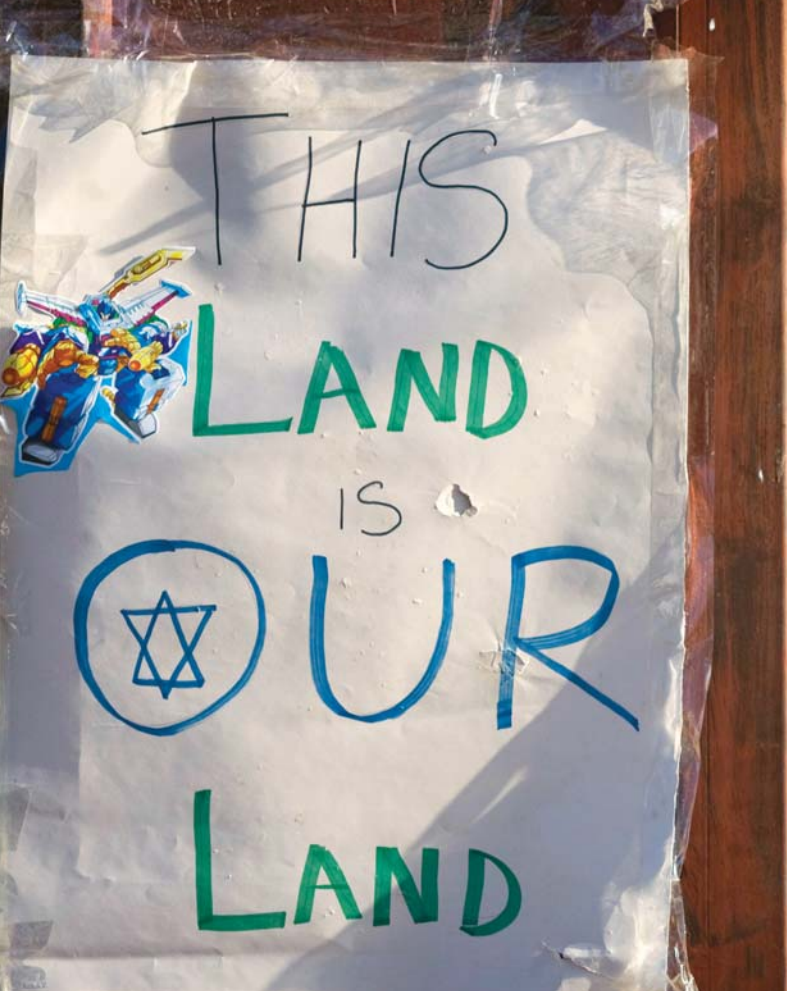 THIS
LAND
IS
OUR
LAND